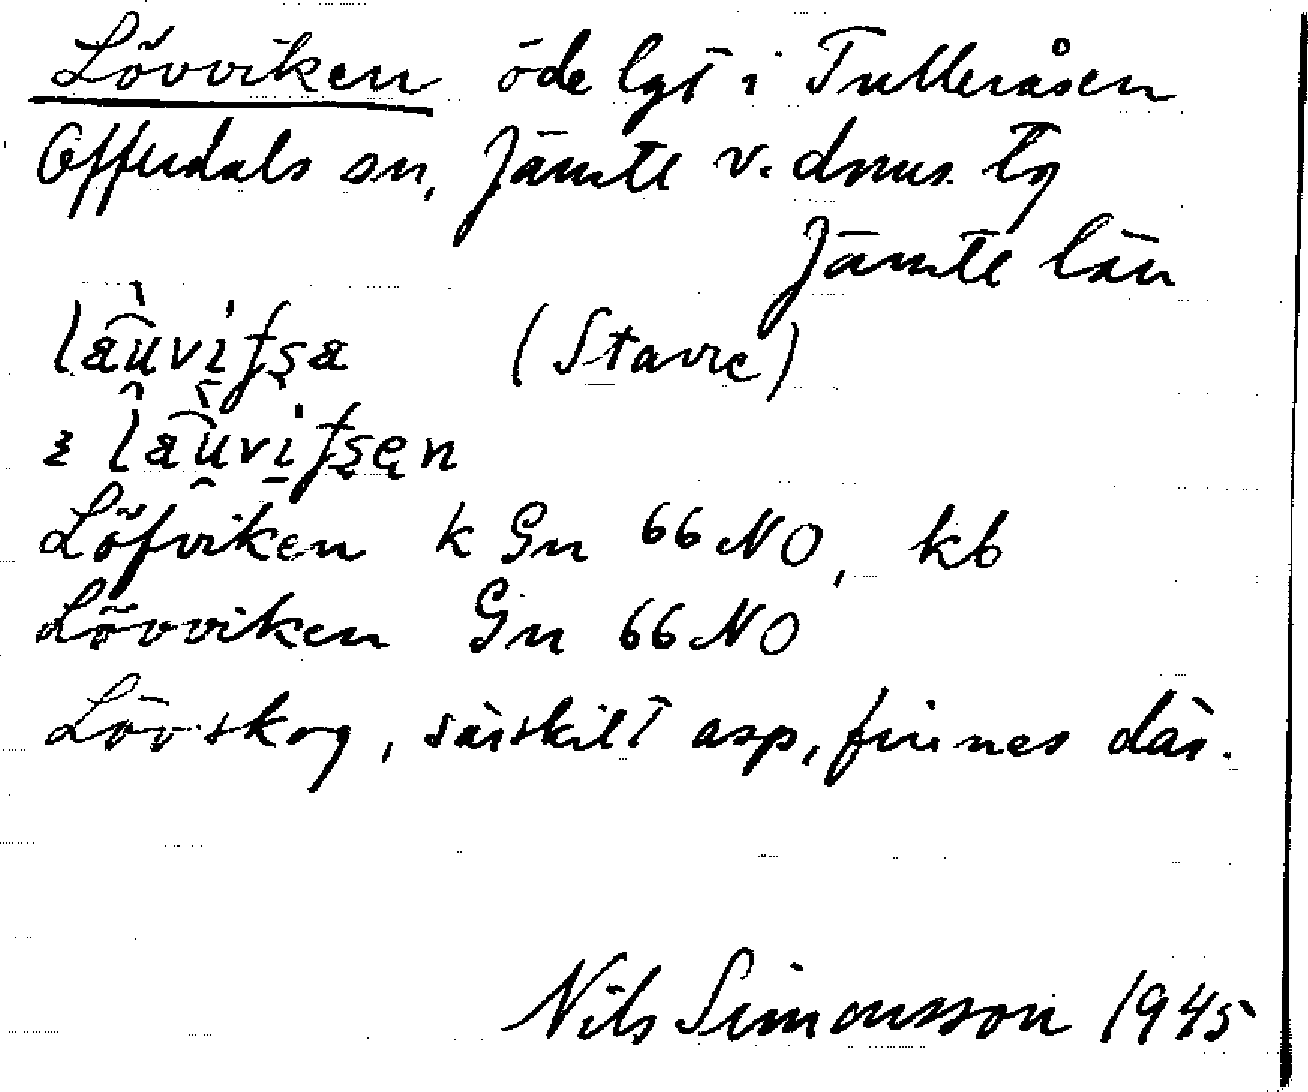 Lövviken öde lgt i Tulleråsen
Offerdals sn, Jämtl v. dmns. tg
Jämtl län
(Stavre)
Löfviken k Gn 66 NO, kb
Lövviken Gn 66 NO
Lövskog, särskilt asp, finnes där.
Nils Simonsson 1945